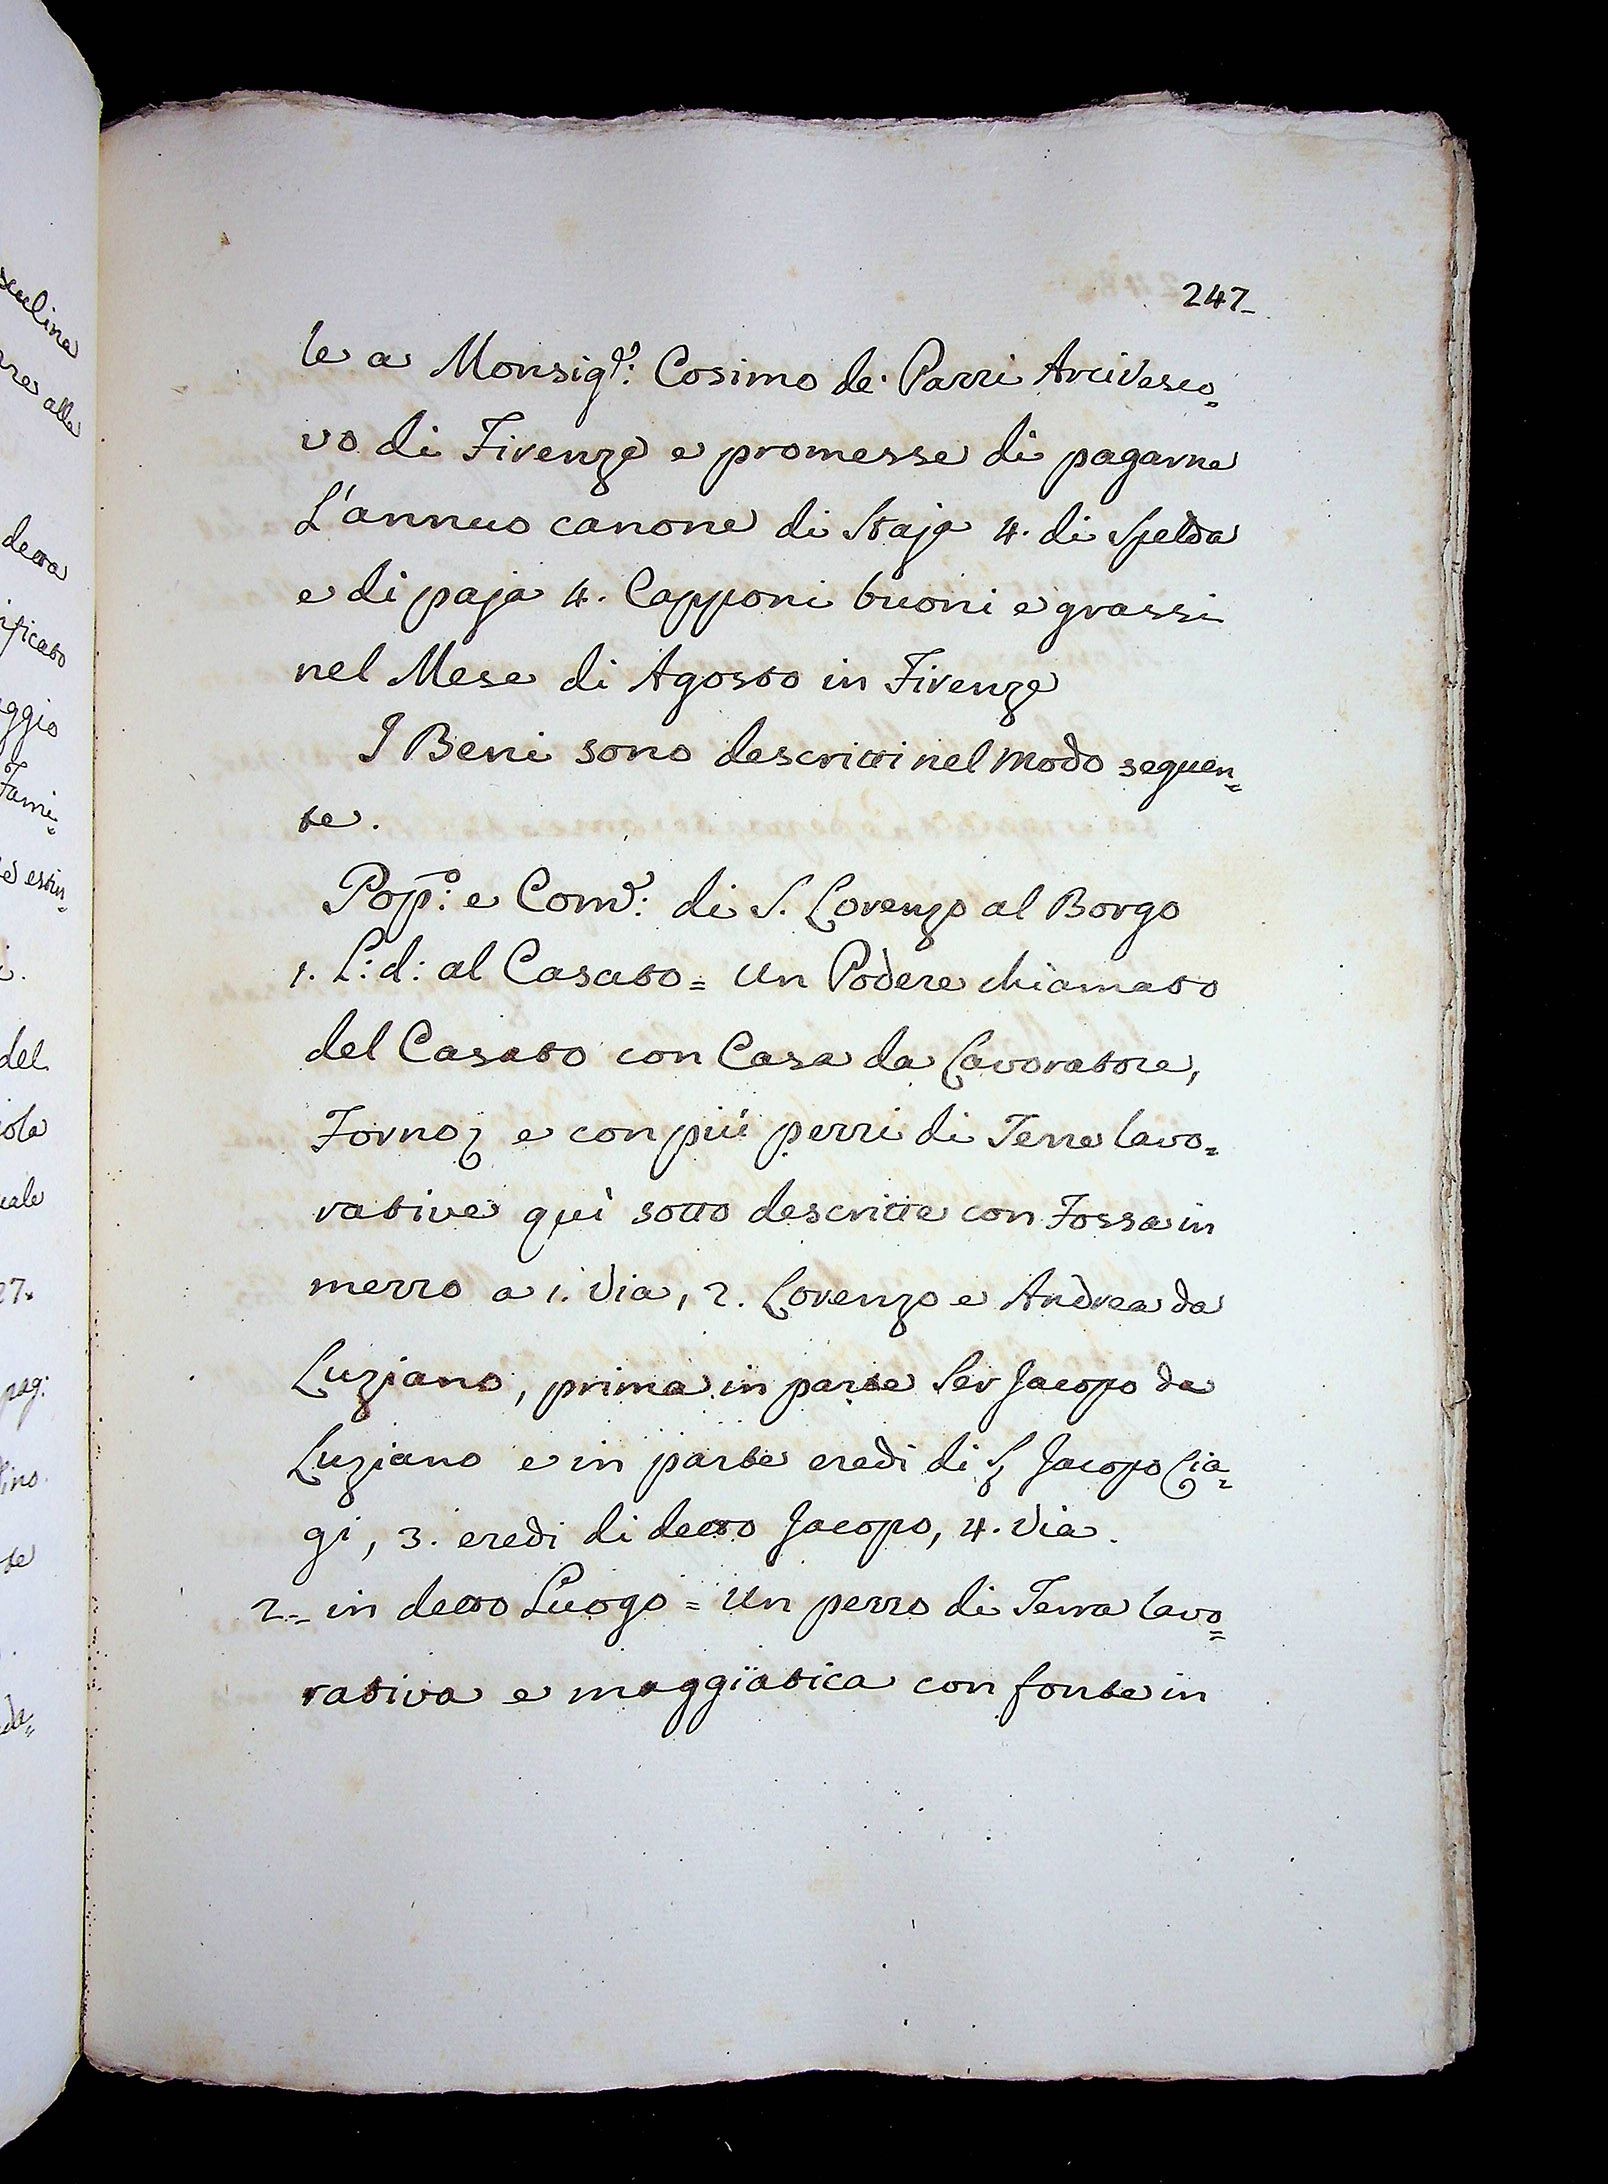 247
le a Monsig.r: Cosimo de' Pazzi Arcivesco=
vo di Firenze e promesse di pagarne
L'annuo canone di Staja 4. di Spelda
e di paja 4. Capponi buoni e grassi
nel Mese di Agosto in Firenze
I Beni sono descritti nel modo seguen=
te.
Pop.o: e Com.e: di S. Lorenzo al Borgo
1. L: d: al Casato = Un Podere chiamato
del Casato con Casa da Lavoratore,
Forno, e con più pezzi di Terre lavo=
rative quì sotto descritte con Fossa in
mezzo a 1. Via, 2. Lorenzo e Andrea da
Luziano, prima in parte Ser Jacopo da
Luziano e in parte eredi di Jacopo Cia=
gi, 3. eredi di detto Jacopo, 4. Via.
2.= in detto Luogo = Un pezzo di Terra lavo=
rativa e maggiatica con fonte in
sculina
alla
detta
ificato
ggio
Fami=
e estin=
i.
del
iola
uale
27.
pag:
lino.
te
da=